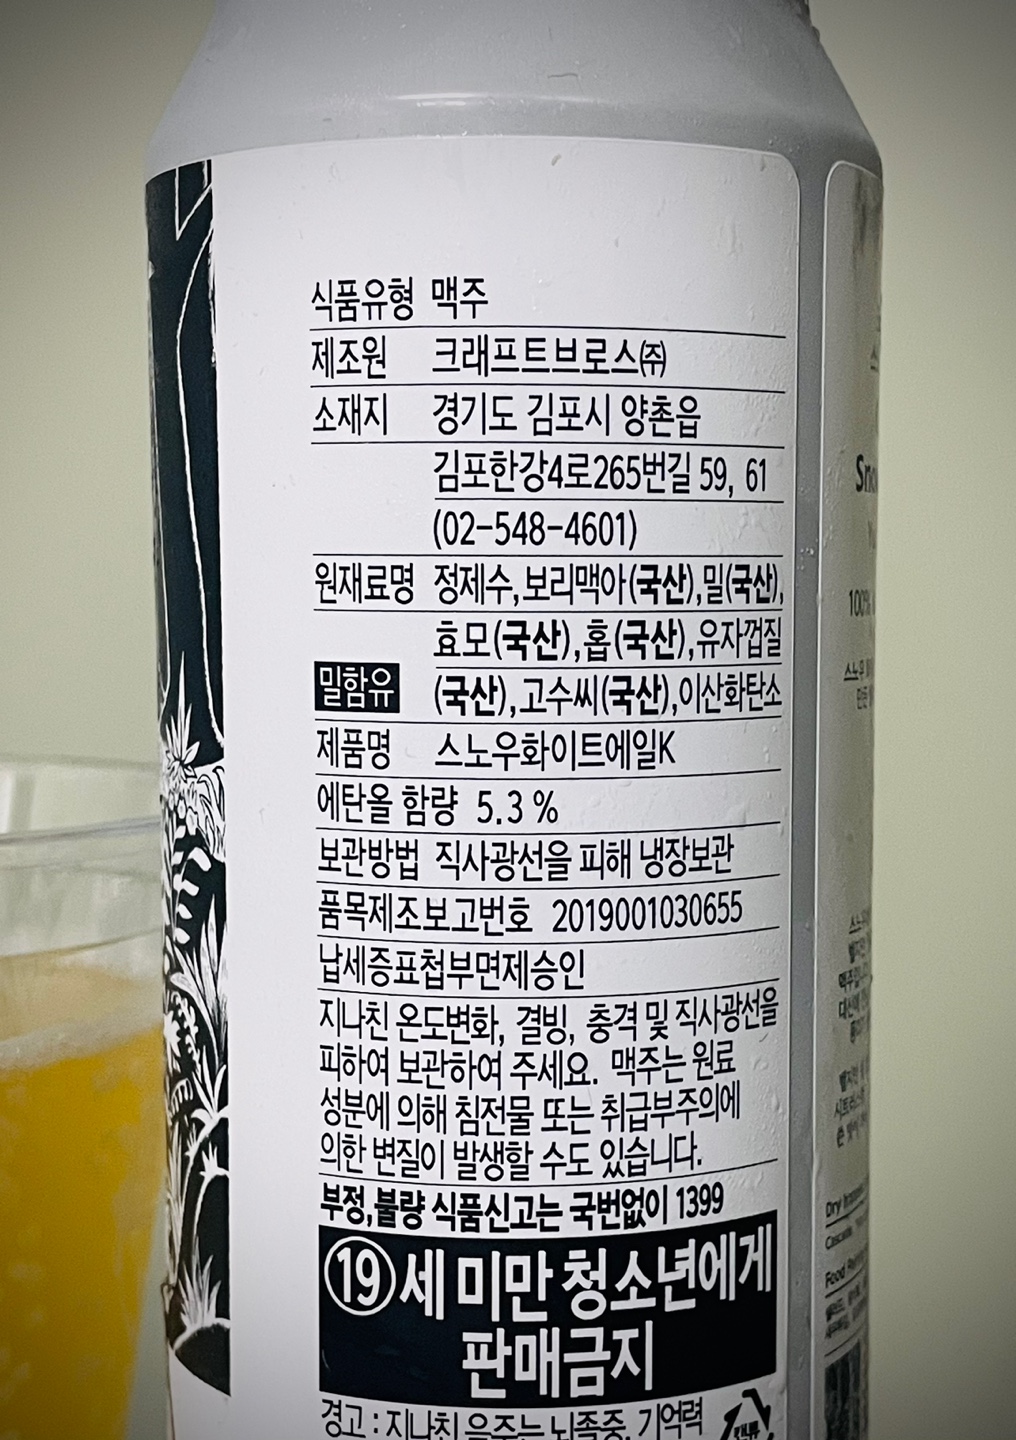 식품유형 맥주
제조원 크래프트브로스㈜
소재지 경기도 김포시 양촌읍
김포한강4로265번길 59, 61
(02-548-4601)
원재료명 정제수,보리맥아(국산),밀(국산),
효모(국산),홉(국산),유자껍질
밀함유 (국산),고수씨(국산),이산화탄소
제품명 스노우화이트에일K
에탄올 함량 5.3 %
보관방법 직사광선을 피해 냉장보관
품목제조보고번호 2019001030655
납세증표첩부면제승인
지나친 온도변화, 결빙, 충격 및 직사광선을
피하여 보관하여 주세요. 맥주는 원료
성분에 의해 침전물 또는 취급부주의에
의한 변질이 발생할 수도 있습니다.
부정,불량 식품신고는 국번없이 1399
⑲세 미만 청소년에게
판매금지
경고 : 지나친 음주는 뇌졸중, 기억력
100%
Dry
Food